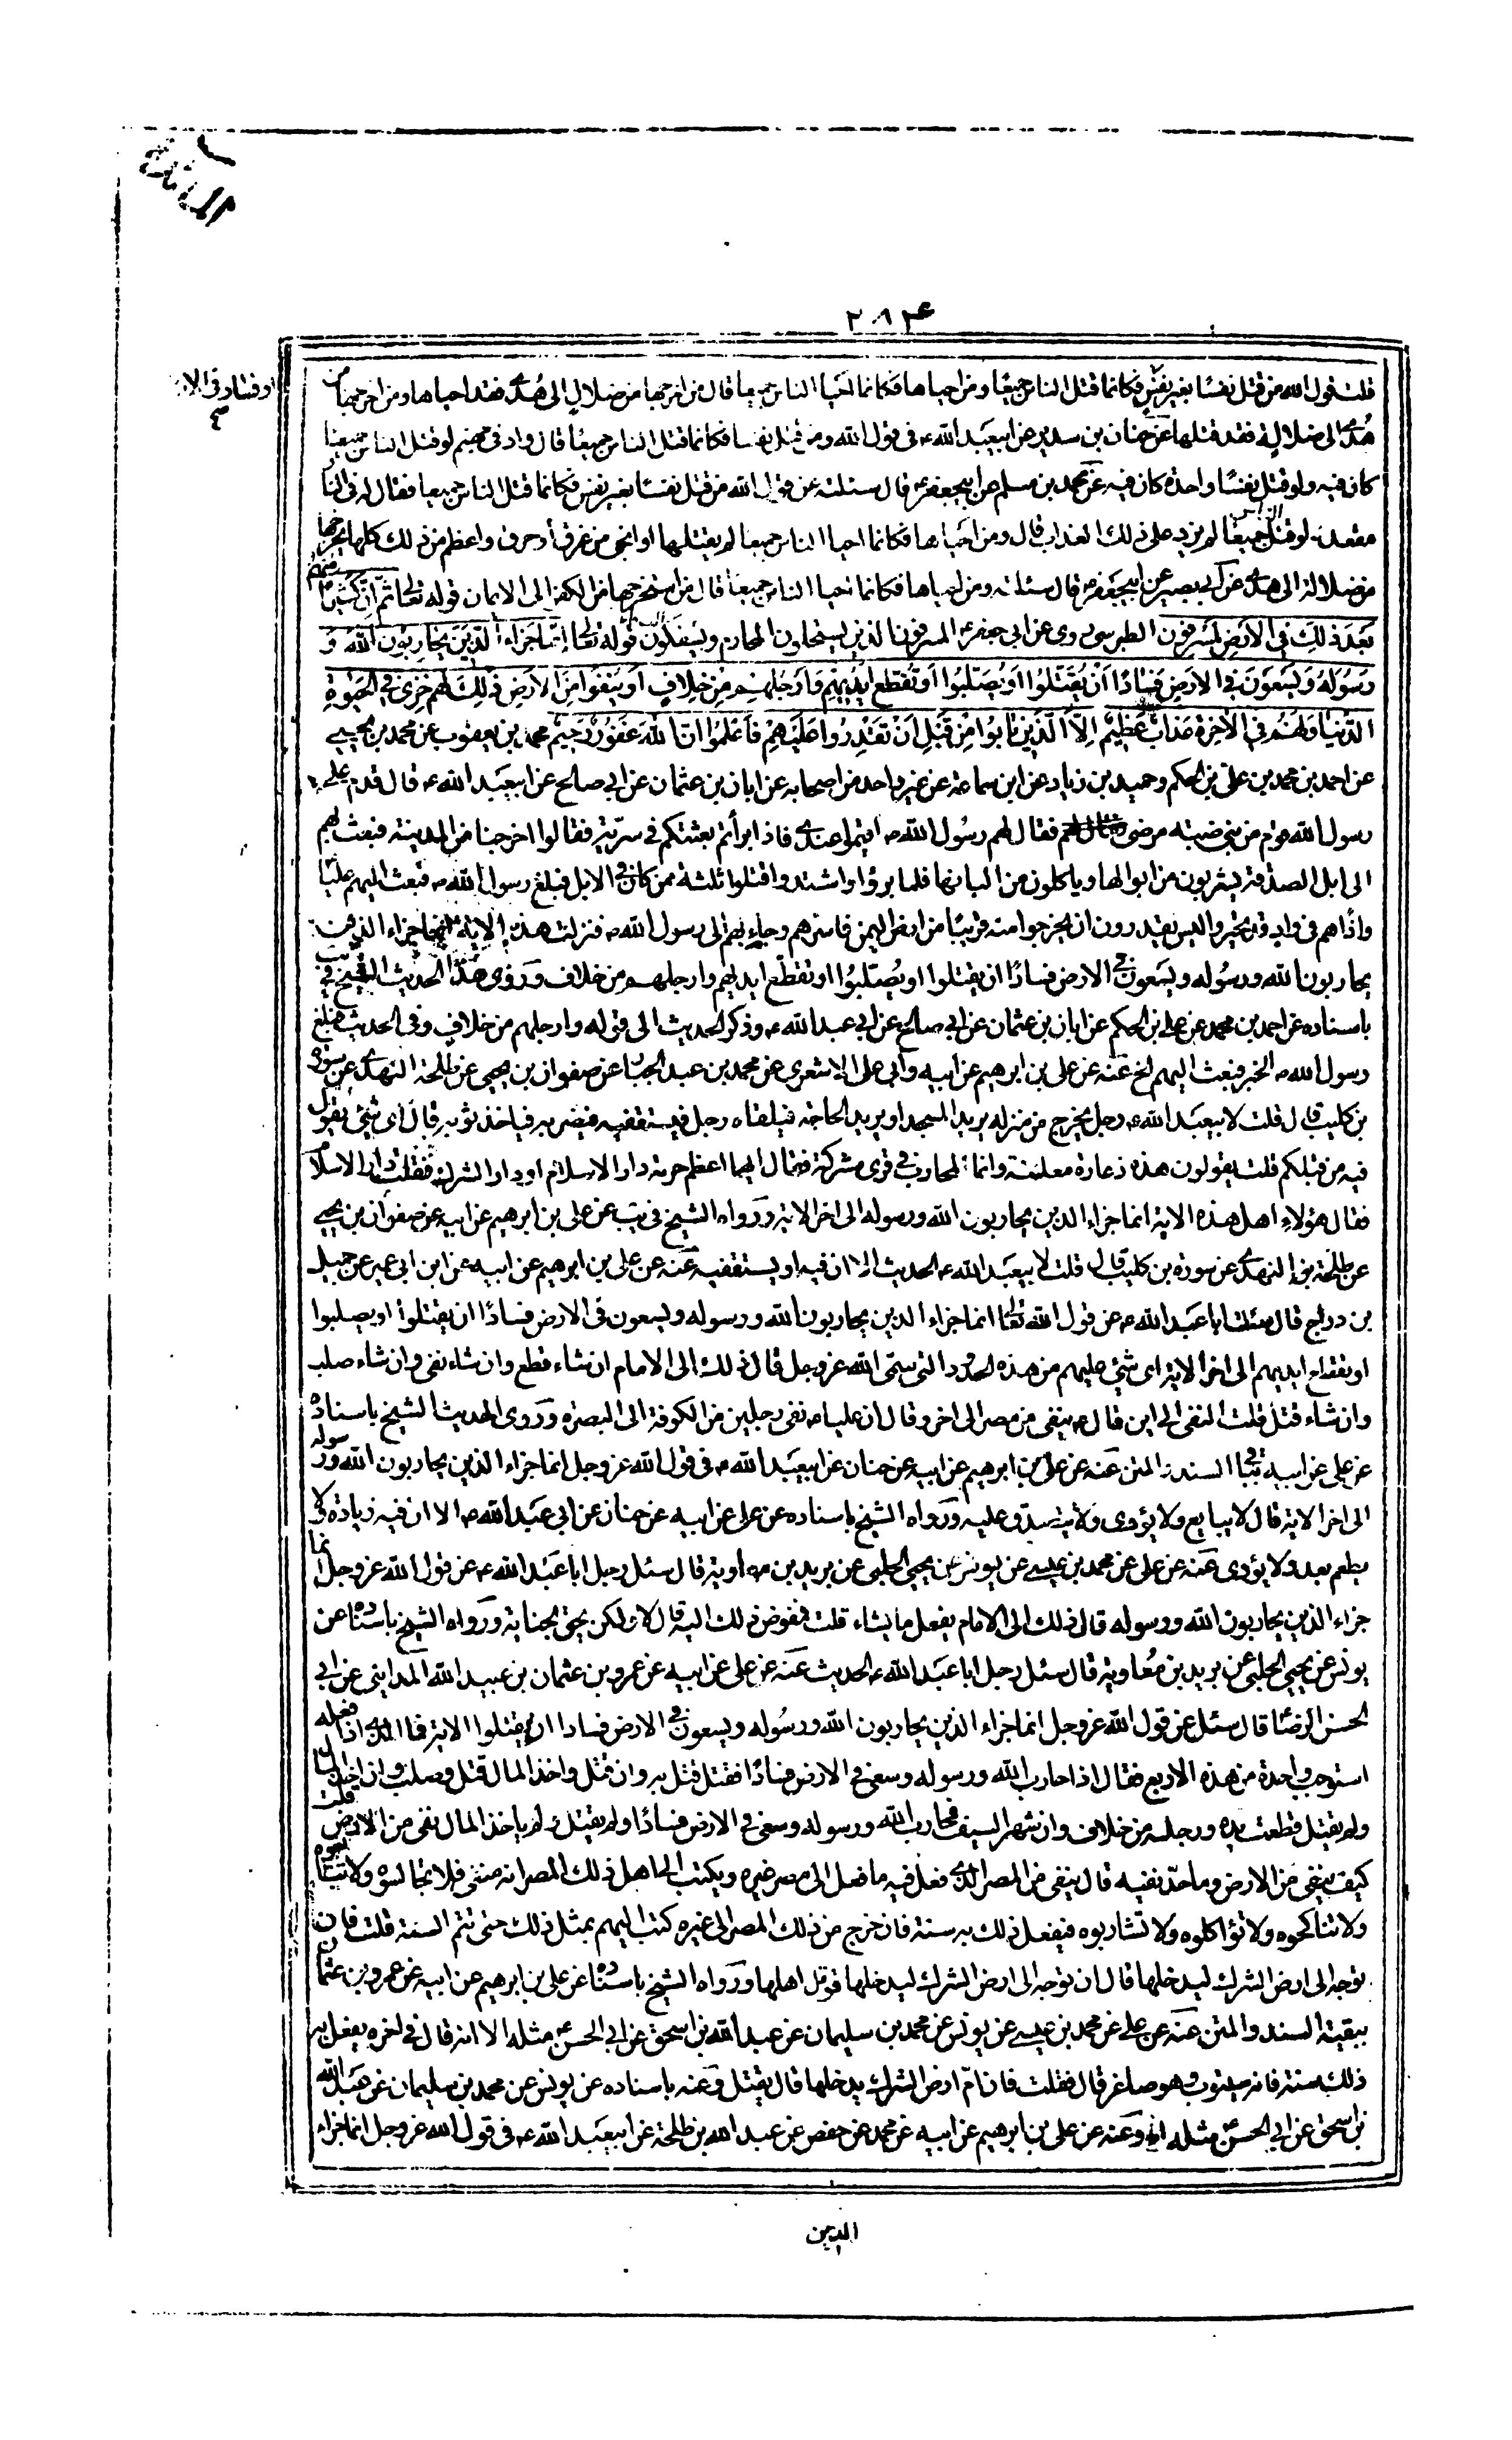 المائدة
٢٨٤
او فساد فى الارض
صح
قلت قول الله من قتل نفسًا بغير نفس فكانما قتل الناس جميعًا ومن احياها فكانما احيا الناس جميعا قال من اخرجها من ضلال الى هدى فقد احياها ومن اخرجها من
هدى الى ضلالة فقد قتلها عنه عن حنان بن سدير عن ابيعبد الله ع فى قول الله ومن قتل نفسا فكانما قتل الناس جميعًا قال واد فى جهنم لو قتل الناس جميعًا
كان فيه ولو قتل نفسًا واحدة كان فيه عن محمد بن مسلم عن ابيجعفر ع قال سئلته عن قول الله من قتل نفسًا بغير نفس فكانما قتل الناس جميعا فقال له فى النار
مقعد لو قتل الناس جميعًا لم يزد على ذلك العذاب قال ومن احياها فكانما احيا الناس جميعا لم يقتلها او انجى من غرق أو حرق واعظم من ذلك كلها يخرجها
من ضلالة الى هدى عن ابى بصير عن ابيجعفر ع قال سئلته ومن احياها فكانما احيا الناس جميعا قال من استخرجها من الكفر الى الايمان قوله تعالى ثم ان كثيرًا منهم
بعد ذلك فى الارض لمسرفون الطبرسى روى عن ابى جعفر ع المسرفون الذين يستحلون المحارم ويسفكون الدماء قوله تعالى إنما جزاء الذين يحاربون الله و
رسوله ويسعون فى الارض فسادًا أن يقتلوا أو يصلبوا أو تقطع أيديهم وأرجلهم من خلاف أو ينفوا من الارض ذلك لهم خزى فى الحيوة
الدنيا ولهم فى الآخرة عذاب عظيم إلا الذين تابوا من قبل أن تقدروا عليهم فاعلموا ان الله غفور رحيم محمد بن يعقوب عن محمد بن يحيى
عن احمد بن محمد بن على بن الحكم وحميد بن زياد عن ابن سماعة عن غير واحد من اصحابه عن ابان بن عثمان عن ابى صالح عن ابيعبد الله ع قال قدم على
رسول الله ص قوم من بنى ضبة مرضى فقال لهم رسول الله ص اقيموا عندى فاذا برأتم بعثتكم فى سرية فقالوا اخرجنا من المدينة فبعث بهم
الى ابل الصدقة يشربون من ابوالها وياكلون من البانها فلما برؤا واشتدوا قتلوا ثلثة ممن كان فى الابل فبلغ رسول الله ص فبعث اليهم عليًا
واذا هم فى واد قد تحيروا ليس يقدرون ان يخرجوا منه قريبًا من ارض اليمن فاسرهم وجاء بهم الى رسول الله ص فنزلت هذه الاية انما جزاء الذين
يحاربون الله ورسوله ويسعون فى الارض فسادًا ان يقتلوا او يصلبوا او تقطع ايديهم وارجلهم من خلاف وروى هذا الحديث الشيخ فى يب
باسناده عن احمد بن محمد عن على بن الحكم عن ابان بن عثمان عن ابى صالح عن ابى عبد الله ع وذكر الحديث الى قوله وارجلهم من خلاف وفى الحديث فبلغ
رسول الله ص الخبر فبعث اليهم الخ عنه عن على بن ابرهيم عن ابيه وابى على الاشعرى عن محمد بن عبد الجبار عن صفوان بن يحيى عن طلحة النهدى عن سورة
بن كليب قال قلت لابيعبد الله ع رجل يخرج من منزله يريد المسجد او يريد الحاجة فيلقاه رجل فيستقفيه فيضربه فياخذ ثوبه قال اى شئ يقول
فيه من قبلكم قلت يقولون هذه زعارة معلنة وانما المحارب فى قرى مشركة فقال ايهما اعظم حرمة دار الاسلام او دار الشرك فقلت دار الاسلام
فقال هؤلاء اهل هذه الاية انما جزاء الذين يحاربون الله ورسوله الى اخر الاية ورواه الشيخ فى يب عن على بن ابرهيم عن ابيه عن صفوان بن يحيى
عن طلحة النهدى عن سورة بن كليب قال قلت لابيعبد الله ع الحديث الا ان فيه او يستقفيه عنه عن على بن ابرهيم عن ابيه عن ابن ابى عمير عن جميل
بن دراج قال سئلت ابا عبد الله ع عن قول الله تعالى انما جزاء الذين يحاربون الله ورسوله ويسعون فى الارض فسادًا ان يقتلوا او يصلبوا
او تقطع ايديهم الى اخر الاية اى شئ عليهم من هذه الحدود التى سمى الله عز وجل قال ذلك الى الامام ان شاء قطع وان شاء نفى وان شاء صلب
وان شاء قتل قلت النفى الى اين قال ع ينفى من مصر الى اخر وقال ان عليا ع نفى رجلين من الكوفة الى البصرة وروى الحديث الشيخ باسناده
عن على عن ابيه بباقى السند والمتن عنه عن على بن ابرهيم عن ابيه عن حنان عن ابيعبد الله ع فى قول الله عز وجل انما جزاء الذين يحاربون الله ورسوله
الى اخر الاية قال لا يبايع ولا يؤوى ولا يتصدق عليه ورواه الشيخ باسناده عن على عن ابيه عن حنان عن ابى عبد الله ع الا ان فيه زيادة ولا
يطعم بعد ولا يؤوى عنه عن على عن محمد بن عيسى عن يونس عن يحيى الحلبى عن بريد بن معاوية قال سئل رجل ابا عبد الله ع عن قول الله عز وجل انما
جزاء الذين يحاربون الله ورسوله قال ذلك الى الامام يفعل ما يشاء قلت فمفوض ذلك اليه قال لا ولكن بحق الجناية ورواه الشيخ باسناده عن
يونس عن يحيى الحلبى عن بريد بن معاوية قال سئل رجل ابا عبد الله ع الحديث عنه عن على عن ابيه عن عمرو بن عثمان بن عبيد الله المداينى عن ابى
الحسن الرضا قال سئل عن قول الله عز وجل انما جزاء الذين يحاربون الله ورسوله ويسعون فى الارض فسادا ان يقتلوا الاية فما الذى اذا فعله
استوجب واحدة من هذه الاربع فقال اذا حارب الله ورسوله وسعى فى الارض فسادًا فقتل قتل به وان قتل واخذ المال قتل وصلب وان اخذ المال
ولم يقتل قطعت يده ورجله من خلاف وان شهر السيف فحارب الله ورسوله وسعى فى الارض فسادًا ولم يقتل ولم ياخذ المال نفى من الارض قلت
كيف ينفى من الارض وما حد نفيه قال ينفى من المصر الذى فعل فيه ما فعل الى مصر غيره ويكتب الى اهل ذلك المصر انه منفى فلا تجالسوه ولا تبايعوه
ولا تناكحوه ولا تؤاكلوه ولا تشاربوه فيفعل ذلك به سنة فان خرج من ذلك المصر الى غيره كتب اليهم بمثل ذلك حتى تتم السنة قلت فان
توجه الى ارض الشرك ليدخلها قال ان توجه الى ارض الشرك ليدخلها قوتل اهلها ورواه الشيخ باسناده عن على بن ابرهيم عن ابيه عن عمرو بن عثمان
ببقية السند والمتن عنه عن على عن محمد بن عيسى عن يونس عن محمد بن سليمان عن عبد الله بن اسحق عن ابى الحسن ع مثله الا انه قال فى اخره يفعل به
ذلك سنة فانه سيتوب وهو صاغر قال فقلت فان ام ارض الشرك يدخلها قال يقتل وعنه باسناده عن يونس عن محمد بن سليمان عن عبد الله
بن اسحق عن ابى الحسن ع مثله وعنه عن على بن ابرهيم عن ابيه عن محمد عن حفص عن عبد الله بن طلحة عن ابيعبد الله ع فى قول الله عز وجل انما جزاء
الذين